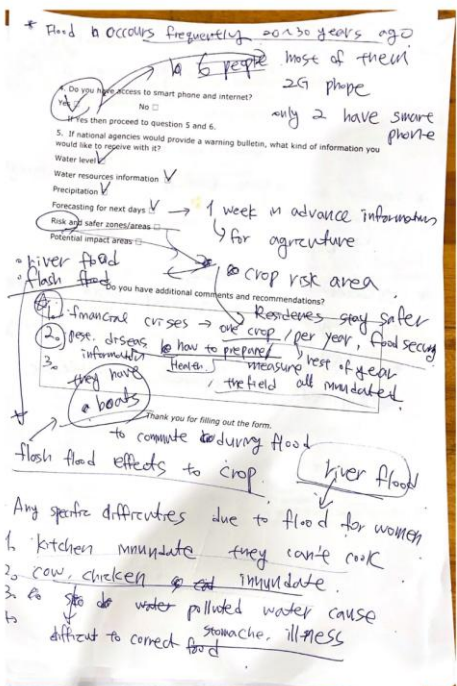 * Flood occours frequently 20~30 years ago
6 people most of them
2G phone
only 2 have smart phone
4. Do you have access to smart phone and internet?
Yes ☐ No ☐
If Yes then proceed to question 5 and 6.
5. If national agencies would provide a warning bulletin, what kind of information you
would like to receive with it?
Water level
Water resources information
Precipitation
Forecasting for next days → 1 week in advance information
for agriculture
Risk and safer zones/areas ☐
Potential impact areas ☐
• River flood
• flash flood
crop risk area
Do you have additional comments and recommendations?
Residenes stay safer
1. financial crises → one crop / per year, food secury
2. diseas how to prepare rest of year
3. information Health measure the field all inundated
they have
• boats
Thank you for filling out the form.
to commute during flood
flash flood effects to crop.
River flood
Any specific difficulties due to flood for women
1. kitchen innundate they can't cook
2. cow, chicken innundate.
3. water polluted water cause
stomache, illness
difficut to correct food